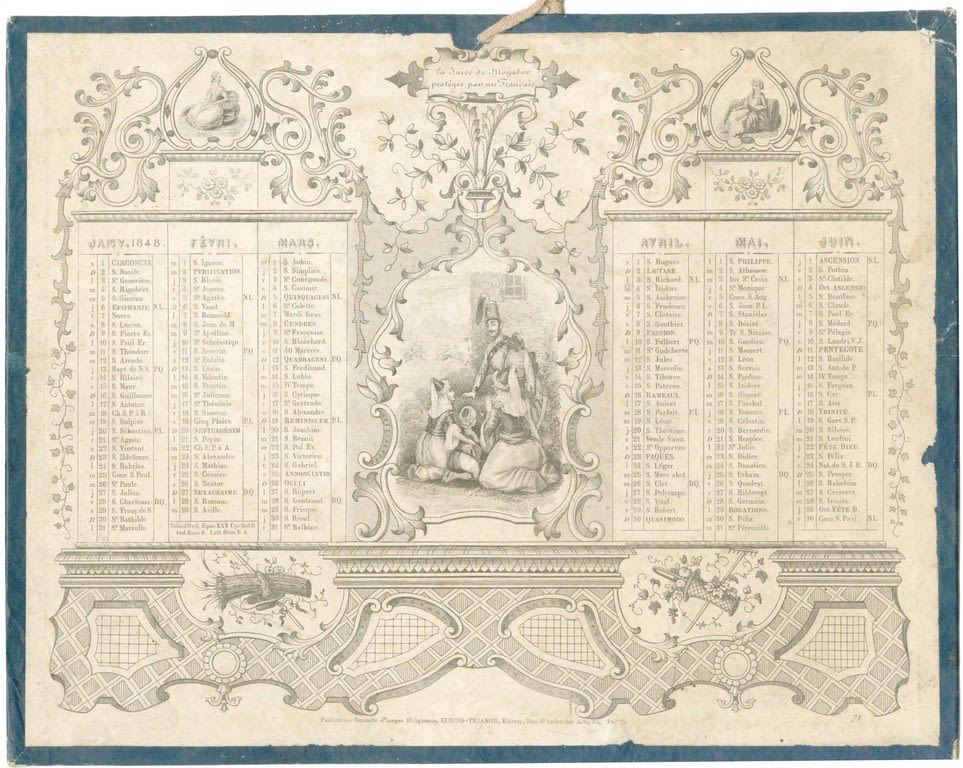 La Juive de Mogador
protégée par un Français
JANV. 1848.
s 1 CIRCONCIS.
D 2 S. Basile.
l 3 Ste Geneviève
m 4 S. Rigobert
m 5 S. Siméon
j 6 EPIPHANIE. N.L.
v 7 Noces.
s 8 S. Lucien.
D 9 S. Pierre Ev.
l 10 S. Paul Er.
m 11 S. Théodore
m 12 S. Arcade.
j 13 Bapt de N.S P.Q.
v 14 S. Hilaire
s 15 S. Maur.
D 16 S. Guillaume
l 17 S. Antoine
m 18 Ch. S. P. à R.
m 19 S. Sulpice
j 20 S. Sébastien P.L.
v 21 Ste Agnès
s 22 S. Vincent
D 23 S. Ildefonse.
l 24 S. Babylas
m 25 Conv. S. Paul
m 26 Ste Paule.
j 27 S. Julien.
v 28 S. Charlem. D.Q.
s 29 S. Franç. de S.
D 30 Ste Bathilde
l 31 Ste Marcelle.
FÉVRI.
m 1 S. Ignace.
m 2 PURIFICATION
j 3 S. Blaise
v 4 Ste Jeanne
s 5 Ste Agathe. N.L.
D 6 S. Vaast.
l 7 S. Romuald
m 8 S. Jean de M
m 9 Ste Apolline
j 10 Ste Scholastiq.
v 11 S. Severin. P.Q.
s 12 Ste Eulalie
D 13 S. Lézin.
l 14 S. Valentin
m 15 S. Faustin.
m 16 Ste Julienne
j 17 S. Théodule.
v 18 S. Siméon
s 19 Cinq Plaies P.L.
D 20 SEPTUAGÉSIM
l 21 S. Pépin.
m 22 Ch. S. P. à A.
m 23 S. Alexandre
j 24 S. Mathias.
v 25 S. Césaire
s 26 S. Nestor
D 27 SEXAGÉSIME. D.Q.
l 28 S. Romain.
m 29 S. Arille.
Nom. d'Or 6. Epac XXV Cyc. Sol 9
Ind Rom 6 Lett Dom B.A
MARS.
m 1 S. Aubin.
j 2 S. Simplice.
v 3 Ste Cunégonde
s 4 S. Casimir.
D 5 QUINQUAGESI N.L.
l 6 Ste Colette.
m 7 Mardi Gras.
m 8 CENDRES.
j 9 Ste Françoise.
v 10 S. Blanchard
s 11 40 Martyrs.
D 12 QUADRAGESI. P.Q.
l 13 S. Ferdinand
m 14 S. Lubin.
m 15 IV Temps
j 16 S. Cyriaque
v 17 Ste Gertrude.
s 18 S. Alexandre.
D 19 REMINISCER P.L.
l 20 S. Joachim
m 21 S. Benoit
m 22 S. Pol Ev.
j 23 S. Victorien
v 24 S. Gabriel
s 25 ANNONCIATIO
D 26 OCULI
l 27 S. Rupert.
m 28 S. Gontrand. D.Q.
m 29 S. Frisque
j 30 S. Rieul
v 31 Ste Balbine.
AVRIL.
s 1 S. Hugues
D 2 LAETARE.
l 3 S. Richard. N.L.
m 4 S. Isidore
m 5 S. Ambroise
j 6 S. Prudence
v 7 S. Clotaire
s 8 S. Gauthier
D 9 PASSION.
l 10 S. Fulbert. P.Q.
m 11 Ste Godeberte
m 12 S. Jules.
j 13 S. Marcelin
v 14 S. Tiburce
s 15 S. Paterne.
D 16 RAMEAUX.
l 17 S. Anicet
m 18 S. Parfait. P.L.
m 19 S. Léon.
j 20 S. Théotime.
v 21 Vendr Saint.
s 22 Ste Opportun
D 23 PAQUES
l 24 S. Léger.
m 25 S. Marc abst.
m 26 S. Clet D.Q.
j 27 S. Polycarpe
v 28 S. Vital.
s 29 S. Robert
D 30 QUASIMODO.
MAI.
l 1 S. PHILIPPE.
m 2 S. Athanase.
m 3 Inv Ste Croix N.L.
j 4 Ste Monique
v 5 Conv. S. Aug
s 6 S. Jean P. L
D 7 S. Stanislas.
l 8 S. Désiré
m 9 Tr S. Nicolas.
m 10 S. Gordien P.Q.
j 11 S. Mamert
v 12 S. Léon.
s 13 S. Servais
D 14 S. Pacôme
l 15 S. Isidore
m 16 S. Honoré
m 17 S. Paschal
j 18 S. Venance. P.L.
v 19 S. Célestin.
s 20 S. Bernardin.
D 21 S. Hospice.
l 22 Ste Julie.
m 23 S. Didier
m 24 S. Donatien.
j 25 S. Urbain. D.Q.
v 26 S. Quadrat.
s 27 S. Hildevert
D 28 S. Germain.
l 29 ROGATIONS.
m 30 S. Félix
m 31 Ste Pétronille.
JUIN.
j 1 ASCENSION N.L.
v 2 S. Pothin
s 3 Ste Clotilde.
D 4 Oct ASCENSIO
l 5 S. Boniface
m 6 S. Claude.
m 7 S. Paul Ev.
j 8 S. Médard. P.Q.
v 9 Ste Pélagie.
s 10 S. Landri V.J.
D 11 PENTECOTE
l 12 S. Basilide.
m 13 S. Ant. de P.
m 14 IV Temps
j 15 S. Fargeau
v 16 S. Cyr P.L.
s 17 S. Avit
D 18 TRINITÉ.
l 19 S. Gerv. S. P.
m 20 S. Silvère.
m 21 S. Leufroi.
j 22 FÊTE DIEU.
v 23 S. Félix.
s 24 Nat. de S. J. B. D.Q.
D 25 S. Prosper.
l 26 S. Babolein.
m 27 S. Crescent.
m 28 S. Irénée.
j 29 Oct. FÊTE D.
v 30 Com. S. Paul. N.L.
Publication Nouvelle d'Images Religieuses, DUBOIS-TRIANON, Éditeur, Rue St André des Arts, PARIS.
71.